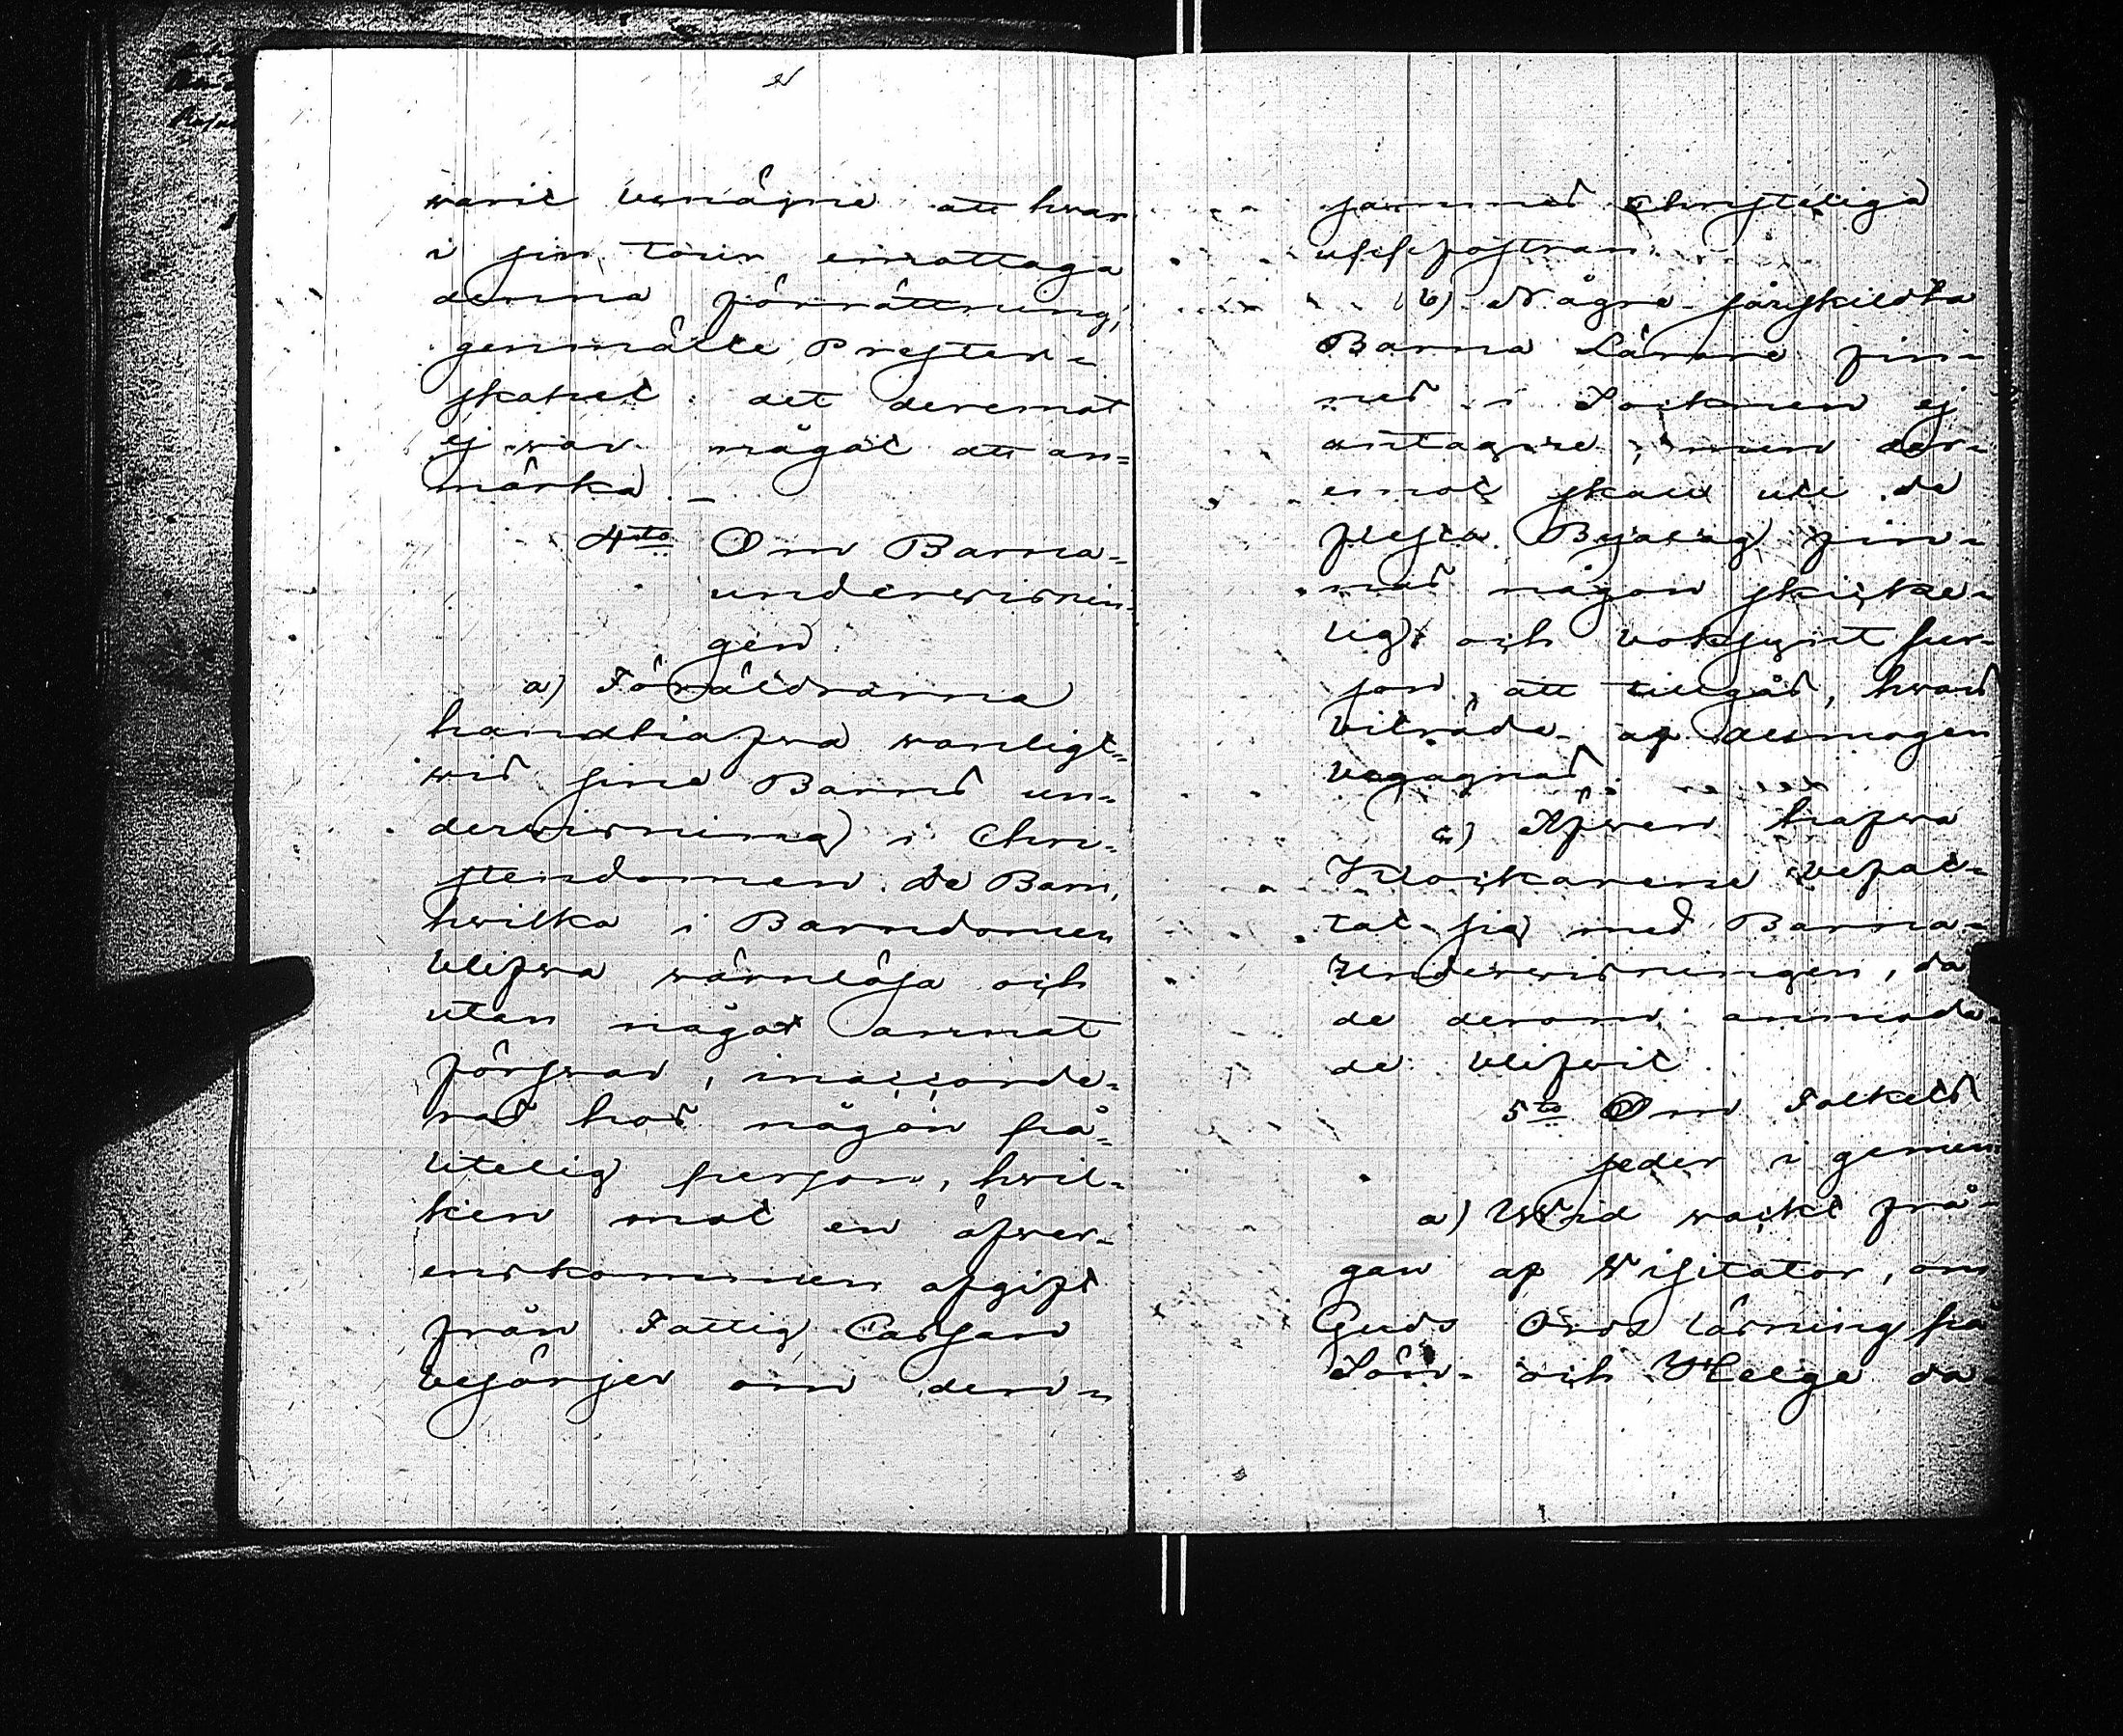 warit benägne att hwar
i sin tour emottaga
denna förrättning;
genmälte Prester-
skapet det deremot
ej war något att an=
märka. –
4to Om Barna-
underwisnin-
gen.
a) Föräldrarna
handhafwa wanligt-
wis sine Barns un-
derwisning i Chri-
stendomen. De Barn,
hwilka i Barndomen
blifwa wärnlösa och
utan något annat
förswar, inaccorde-
ras hos någon på-
litelig person, hwil-
ken mot en öfwer-
enskommen afgift
från Fattig Cassan
besörjer om deras
sammas Christeliga
uppfostran.
b) Någre särskildta
Barna Lärare fin-
nas i Socknen ej
antagne; men der-
emot skall uti de
flesta Byalag fin-
nas någon skicke-
lig och boksynt per-
son, att tillgås, hwars
biträde af allmogen
begagnas.
c) Äfwen hafwa
Klockarene befat-
tat sig med Barna-
Underwisningen, då
de derom anmoda-
de blifwit.
5to Om Folkets
seder i gemen
a) Wid wäckt frå-
gan af Visitator, om
Guds Ords läsning på
Sön- och Helge da-